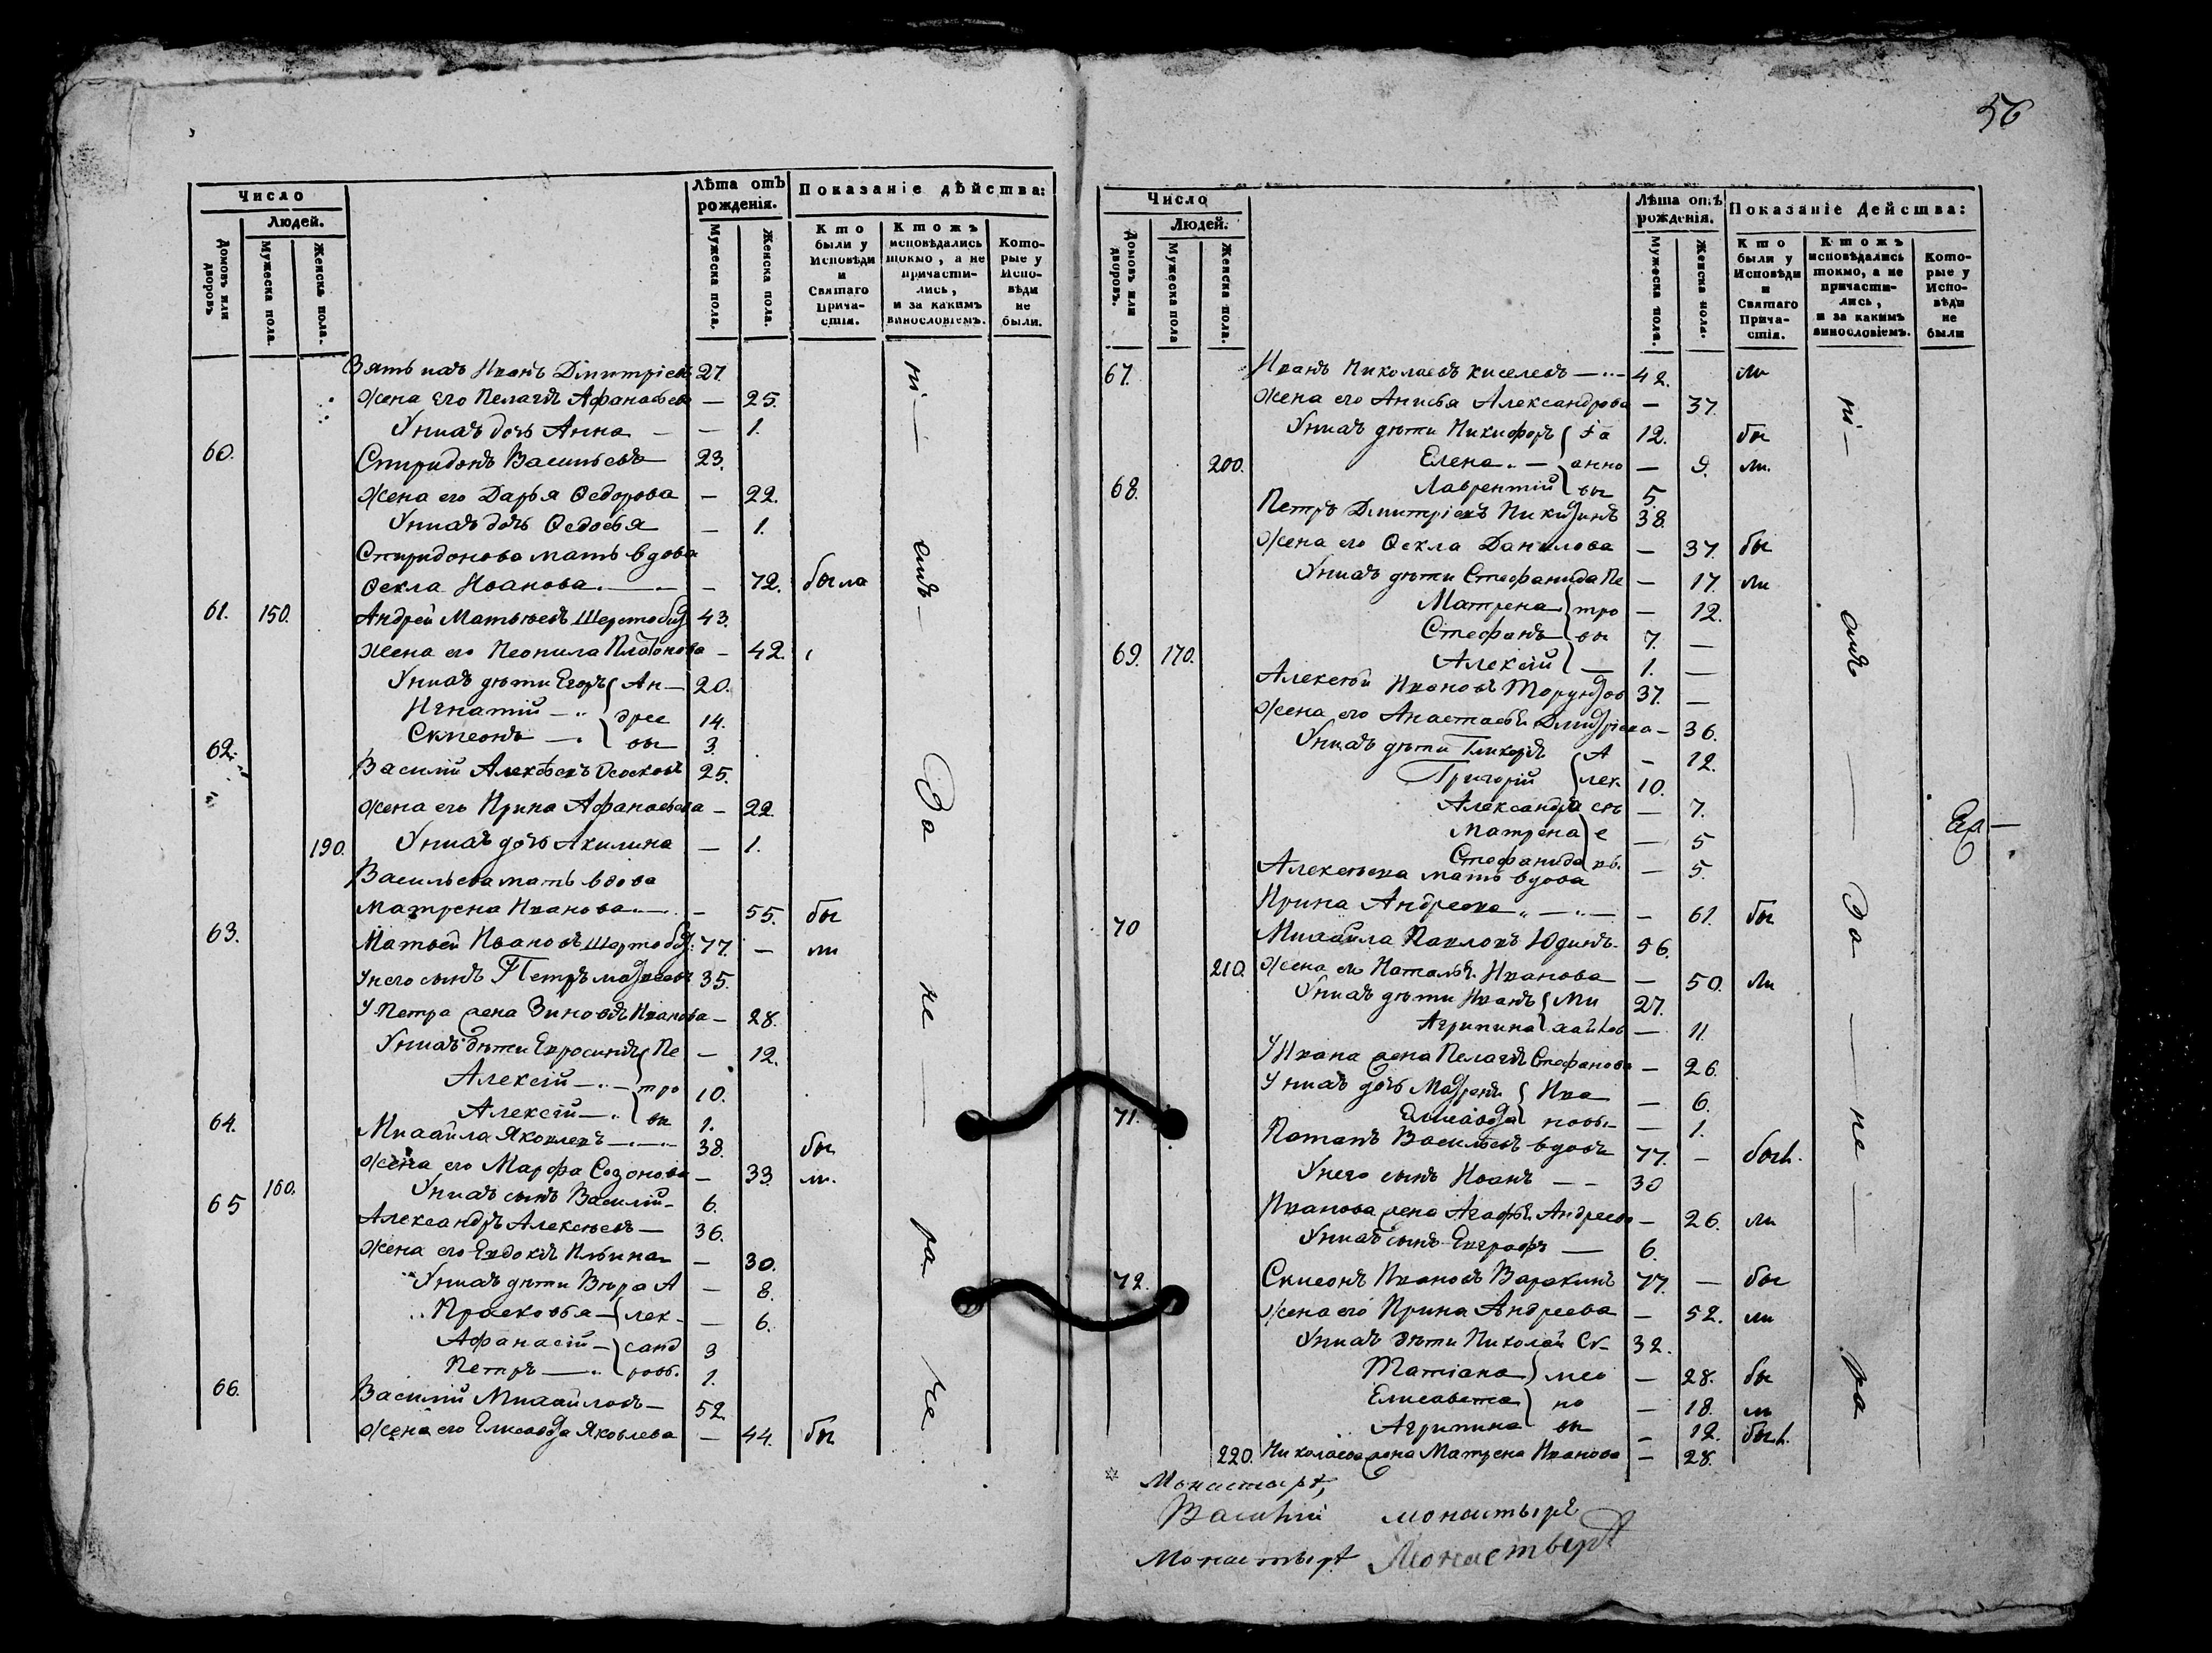 56
Число
Людей.
Домовъ или дворовъ
Мужеска пола.
Женска пола.
Лѣта отъ рожденія.
Мужеска пола.
Женска пола.
Показаніе дѣйства:
Кто были у Исповѣди и Святаго Прича-стія.
Ктожъ исповѣдались токмо, а не причасти-лись, и за какимъ винословіемъ.
Кото-рые у Испо-вѣди не были.
Зять ихъ Иванъ Димитріевъ 27.
Жена его Пелагія Афанасьева — 25.
У нихъ дочь Анна — — 1.
60. Спиридонъ Васильевъ 23.
Жена его Дарья Ѳедорова — 22.
У нихъ дочь Ѳедосья — 1.
Спиридонова мать вдова
Ѳекла Иванова — 72. была
61. 150. Андрей Матвѣевъ 43.
Жена его Неонила Платонова — 42.
У нихъ дѣти Егоръ Ан— 20.
Игнатій — дрее 14.
Симеонъ — вы 3.
62. Василій Алексѣевъ 25.
Жена его Ирина Афанасьева — 22.
190. У нихъ дочь Акилина — 1.
Васильева мать вдова
Матрена Иванова — 55. бы
63. Матвей Ивановъ 77. — ли
У него сынъ Петръ Матвеевъ 35.
У Петра жена Зиновія Иванова — 28.
У нихъ дѣти Евросинія Пе — 12.
Алексій — тро 10.
Алексій — вы 1.
64. Михайла Яковлевъ — 38. бы
Жена его Марфа Созонова — 33. ли.
160. У нихъ сынъ Василій — 6.
65 Александръ Алексѣевъ — 36.
Жена его Евдокія Ильина — 30.
У нихъ дѣти Вѣра А — 8.
Прасковья — лек — 6.
Афанасій — санд 3
Петръ — ровы. 1.
66. Василий Михайловъ — 52.
Жена его Елисавета Яковлева — 44. бы
ні — единъ — За не — ра — че
Число
Людей.
Домовъ или дворовъ.
Мужеска пола
Женска пола.
Лѣта отъ рожденія.
Мужеска пола.
Женска пола.
Показаніе Действа:
Кто были у Исповѣди и Святаго Прича-стія.
Ктожъ исповѣдались токмо, а не причасти-лись, и за какимъ винословіемъ.
Кото-рые у Испо-вѣди не были
67. Иванъ Николаевъ Киселевъ — 42. ли
Жена его Анисья Александрова — 37.
У нихъ дѣти Никифоръ Іо 12. бы
200. Елена — анно — 9. ли.
Лаврентій вы 5.
68. Петръ Дмитріевъ Никитинъ 38.
Жена его Ѳекла Данилова — 37. бы
У нихъ дѣти Стефанида Пе — 17. ли
Матрена тро — 12.
Стефанъ вы 7. —
69. 170. Алексій — 1. —
Алексѣй Ивановъ 37. —
Жена его Анастасья Дмитріева — 36.
У нихъ дѣти Гликерія А — 12.
Григорій лек. 10.
Александра сѣ — 7.
Матрена е — 5
Стефанида вы. — 5.
Алексѣева мать вдова
Ирина Андреева — — 61. бы
70 Михайла Павловъ Юдинъ 56.
210. Жена его Наталья Иванова — 50. ли
У нихъ дѣти Иванъ Ми 27.
Агрипина хайлов — 11.
У Ивана жена Пелагія Стефанова — 26.
У нихъ дочь Матрена Ива — 6.
Елисавета новы — 1.
71. Потапъ Васильевъ вдовъ 77. — былъ.
У него сынъ Иванъ — — 30
Иванова жена Агафья Андреева — 26. ли
У нихъ сынъ Евграфъ — 6.
72. Симеонъ Ивановъ Варакинъ 77. — бы
Жена его Ирина Андреева — 52. ли
У нихъ дѣти Николай Си— 32.
Татіана мео — 28. бы
Елисавета но — 18. ли
Агрипина вы — 12. был.
220. Николаева жена Матрена Иванова — 28.
ні — единъ — За — не — ра
Монастырь,
Василій монастырь
Монастырь Монастырь